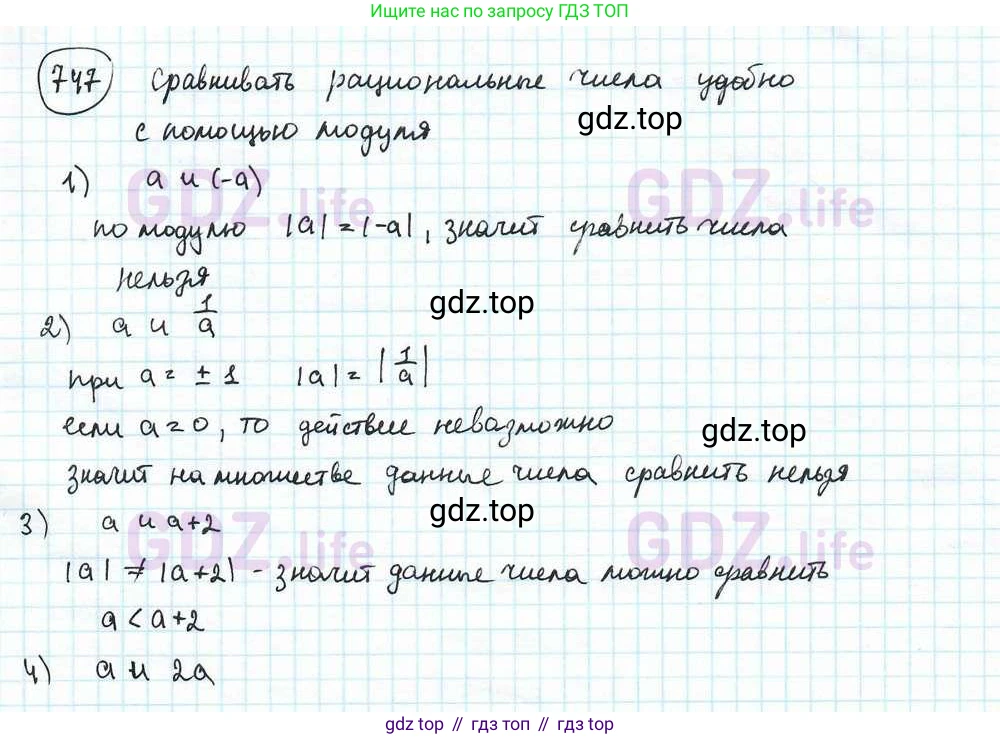 Ищите нас по запросу ГДЗ ТОП
747 Сравнивать рациональные числа удобно
с помощью модуля
gdz.top
1) a и (-a)
GDZ.life GDZ.life
по модулю |a|=|-a|, значит сравнить числа
нельзя
gdz.top
2) a и 1/a
при a = ± 1 |a| = |1/a|
если a = 0, то действие невазможно
gdz.top
значит на множестве данные числа сравнить нельзя
3) a и a+2
gdz.top
GDZ.life GDZ.life
|a| ≠ |a+2| - значит данные числа можно сравнить
a < a+2
4) a и 2a
gdz top // гдз топ // gdz top